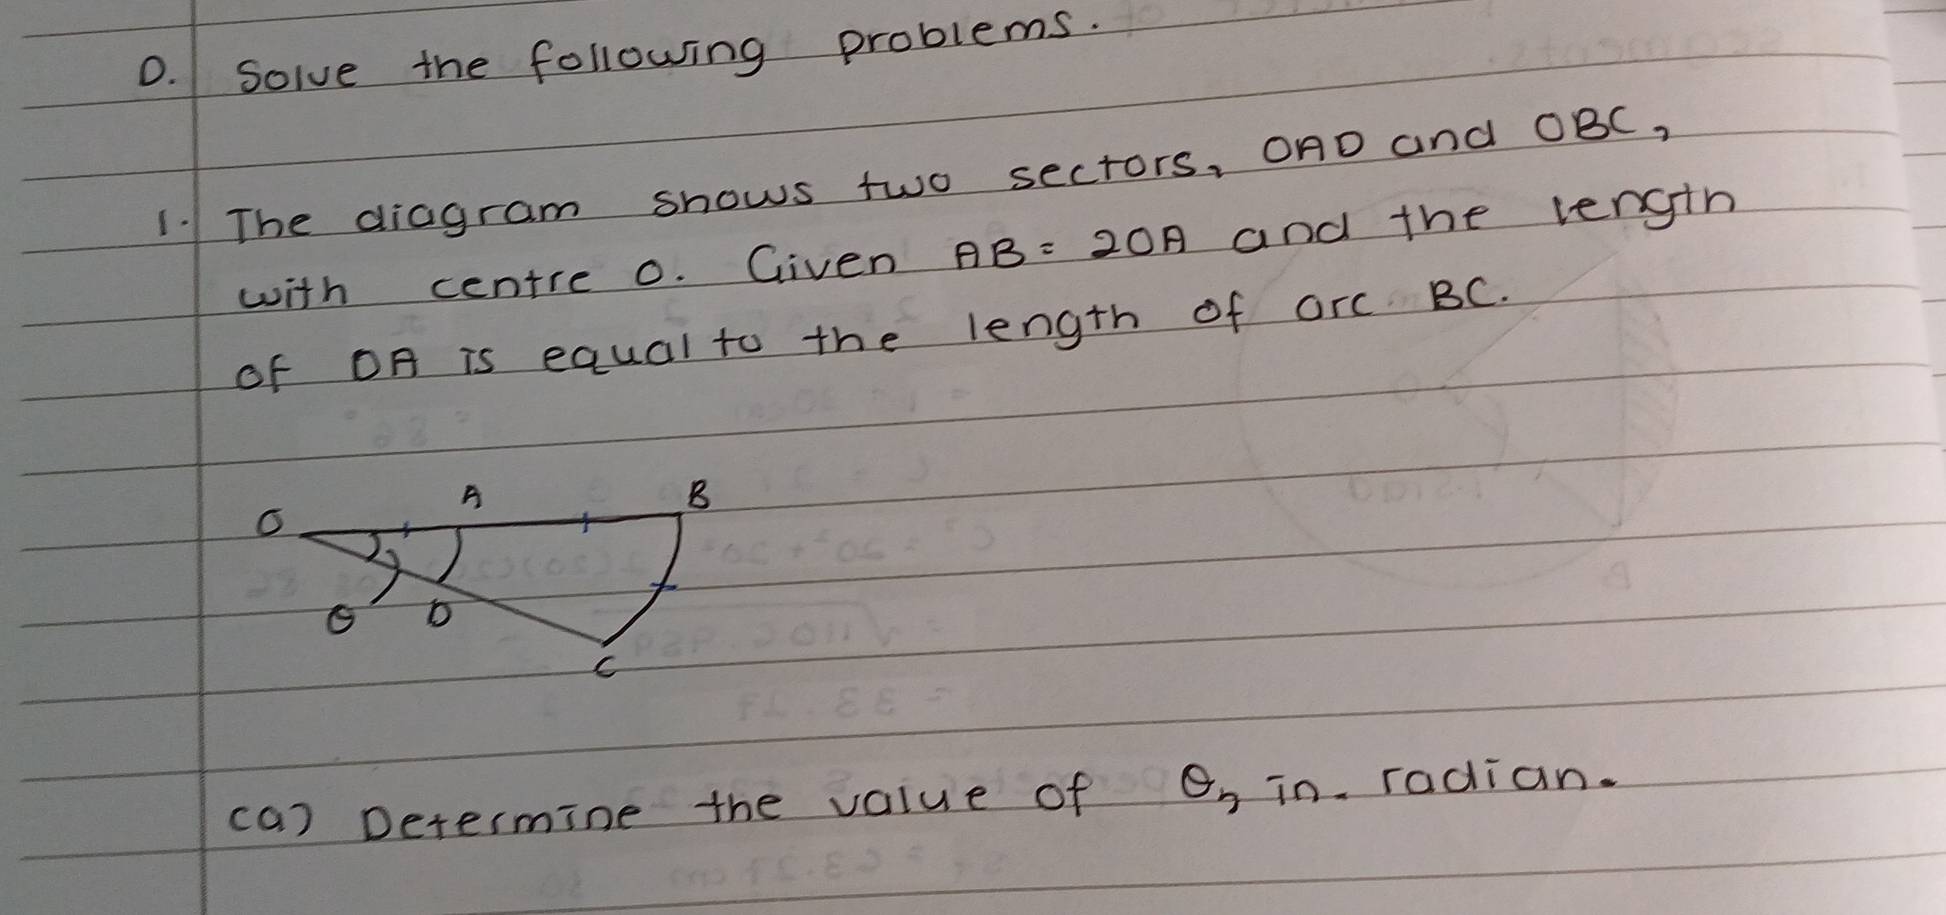 D. Solve the following problems.
1. The diagram shows two sectors, OAD and OBC,
with centre O. Given AB = 2OA and the length
of OA is equal to the length of arc BC.
O A B
θ D
C
(a) Determine the value of θ, in radian.